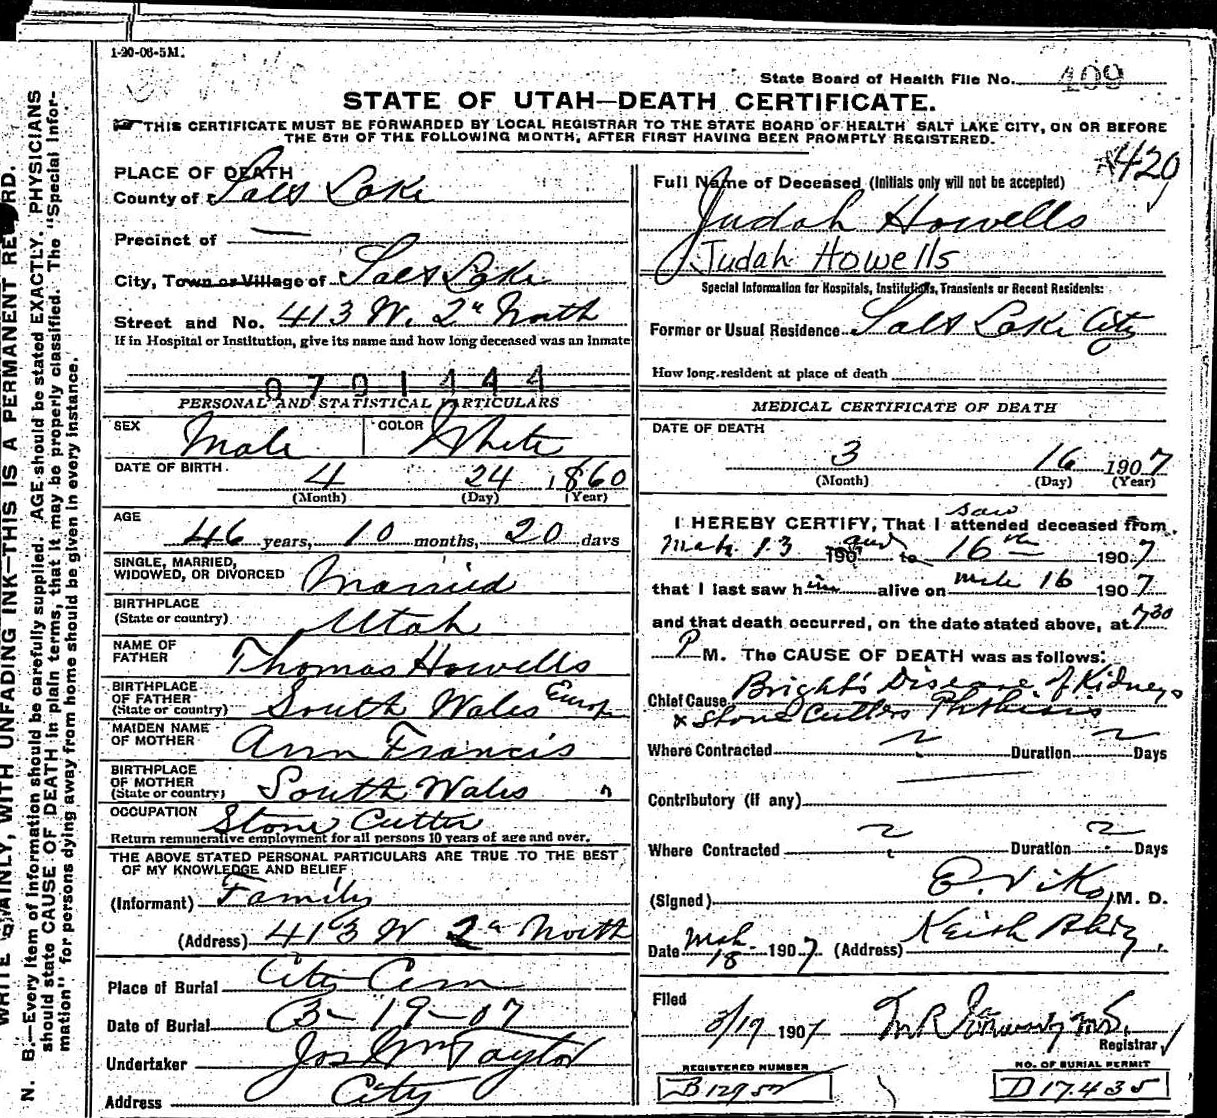 1-20-06-5M.
State Board of Health File No. 400
STATE OF UTAH—DEATH CERTIFICATE.
THIS CERTIFICATE MUST BE FORWARDED BY LOCAL REGISTRAR TO THE STATE BOARD OF HEALTH SALT LAKE CITY, ON OR BEFORE
THE 5TH OF THE FOLLOWING MONTH, AFTER FIRST HAVING BEEN PROMPTLY REGISTERED.
420
PLACE OF DEATH
County of Salt Lake
Precinct of —
City, Town or Village of Salt Lake
Street and No. 413 W. 2nd North
If in Hospital or Institution, give its name and how long deceased was an Inmate
0701444
PERSONAL AND STATISTICAL PARTICULARS
SEX Male COLOR White
DATE OF BIRTH 4 24 1860
(Month) (Day) (Year)
AGE
46 years, 10 months, 20 days
SINGLE, MARRIED,
WIDOWED, OR DIVORCED Married
BIRTHPLACE
(State or country) Utah
NAME OF
FATHER Thomas Howells
BIRTHPLACE
OF FATHER
(State or country) South Wales Europe
MAIDEN NAME
OF MOTHER Ann Francis
BIRTHPLACE
OF MOTHER
(State or country) South Wales "
OCCUPATION Stone Cutter
Return remunerative employment for all persons 10 years of age and over.
THE ABOVE STATED PERSONAL PARTICULARS ARE TRUE TO THE BEST
OF MY KNOWLEDGE AND BELIEF
(Informant) Family
(Address) 413 W 2nd North
Place of Burial City Cem
Date of Burial 3-19-07
Undertaker Jos Wm Taylor
Address City
Full Name of Deceased (Initials only will not be accepted)
Judah Howells
Judah Howells
Special Information for Hospitals, Institutions, Transients or Recent Residents:
Former or Usual Residence Salt Lake City
How long resident at place of death
MEDICAL CERTIFICATE OF DEATH
DATE OF DEATH
3 16 1907
(Month) (Day) (Year)
saw
I HEREBY CERTIFY, That I attended deceased from
Mch 13 190 and to 16th 1907
that I last saw him alive on Mch 16 1907
and that death occurred, on the date stated above, at 7 30
P M. The CAUSE OF DEATH was as follows:
Chief Cause Bright's Disease of Kidneys
x Stone Cutters Phthisis
Where Contracted ? Duration ? Days
Contributory (if any) —
Where Contracted ? Duration ? Days
(Signed) E. Viko, M. D.
Date Mch 18 1907 (Address) Keith Bldg,
Filed
3/19 1907
Registrar
REGISTERED NUMBER
B12952
NO. OF BURIAL PERMIT
D17435
WRITE PLAINLY, WITH UNFADING INK—THIS IS A PERMANENT RECORD.
N. B.—Every item of information should be carefully supplied. AGE should be stated EXACTLY. PHYSICIANS
should state CAUSE OF DEATH in plain terms, that it may be properly classified. The "Special Infor-
mation" for persons dying away from home should be given in every instance.